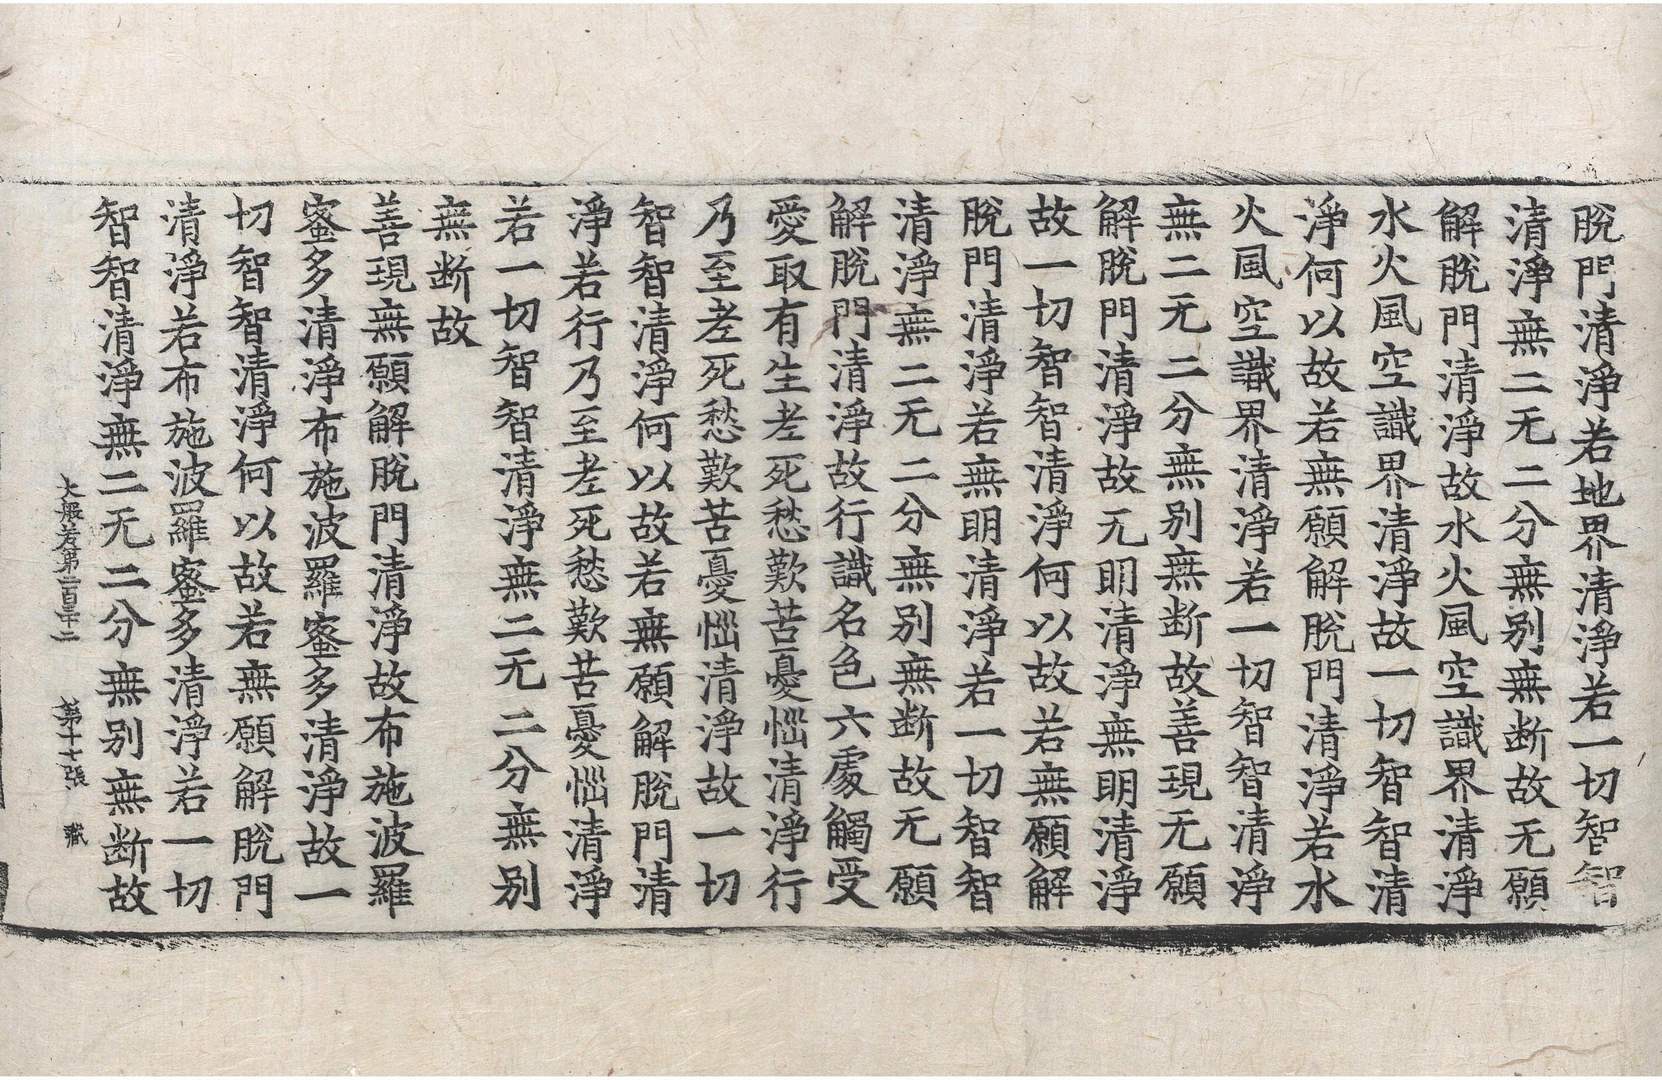 脫門清淨若地界清淨若一切智智
清淨無二无二分無別無断故无願
解脫門清淨故水火風空識界清淨
水火風空識界清淨故一切智智清
淨何以故若無願解脫門清淨若水
火風空識界清淨若一切智智清淨
無二无二分無別無断故善現无願
解脫門清淨故无明清淨無明清淨
故一切智智清淨何以故若無願解
脫門清淨若無明清淨若一切智智
清淨無二无二分無別無断故无願
解脫門清淨故行識名色六處觸受
愛取有生老死愁歎苦憂惱清淨行
乃至老死愁歎苦憂惱清淨故一切
智智清淨何以故若無願解脫門清
淨若行乃至老死愁歎苦憂惱清淨
若一切智智清淨無二无二分無別
無断故
善現無願解脫門清淨故布施波羅
蜜多清淨布施波羅蜜多清淨故一
切智智清淨何以故若無願解脫門
清淨若布施波羅蜜多清淨若一切
智智清淨無二无二分無別無断故
大般若第二百三十二 第十七張 藏